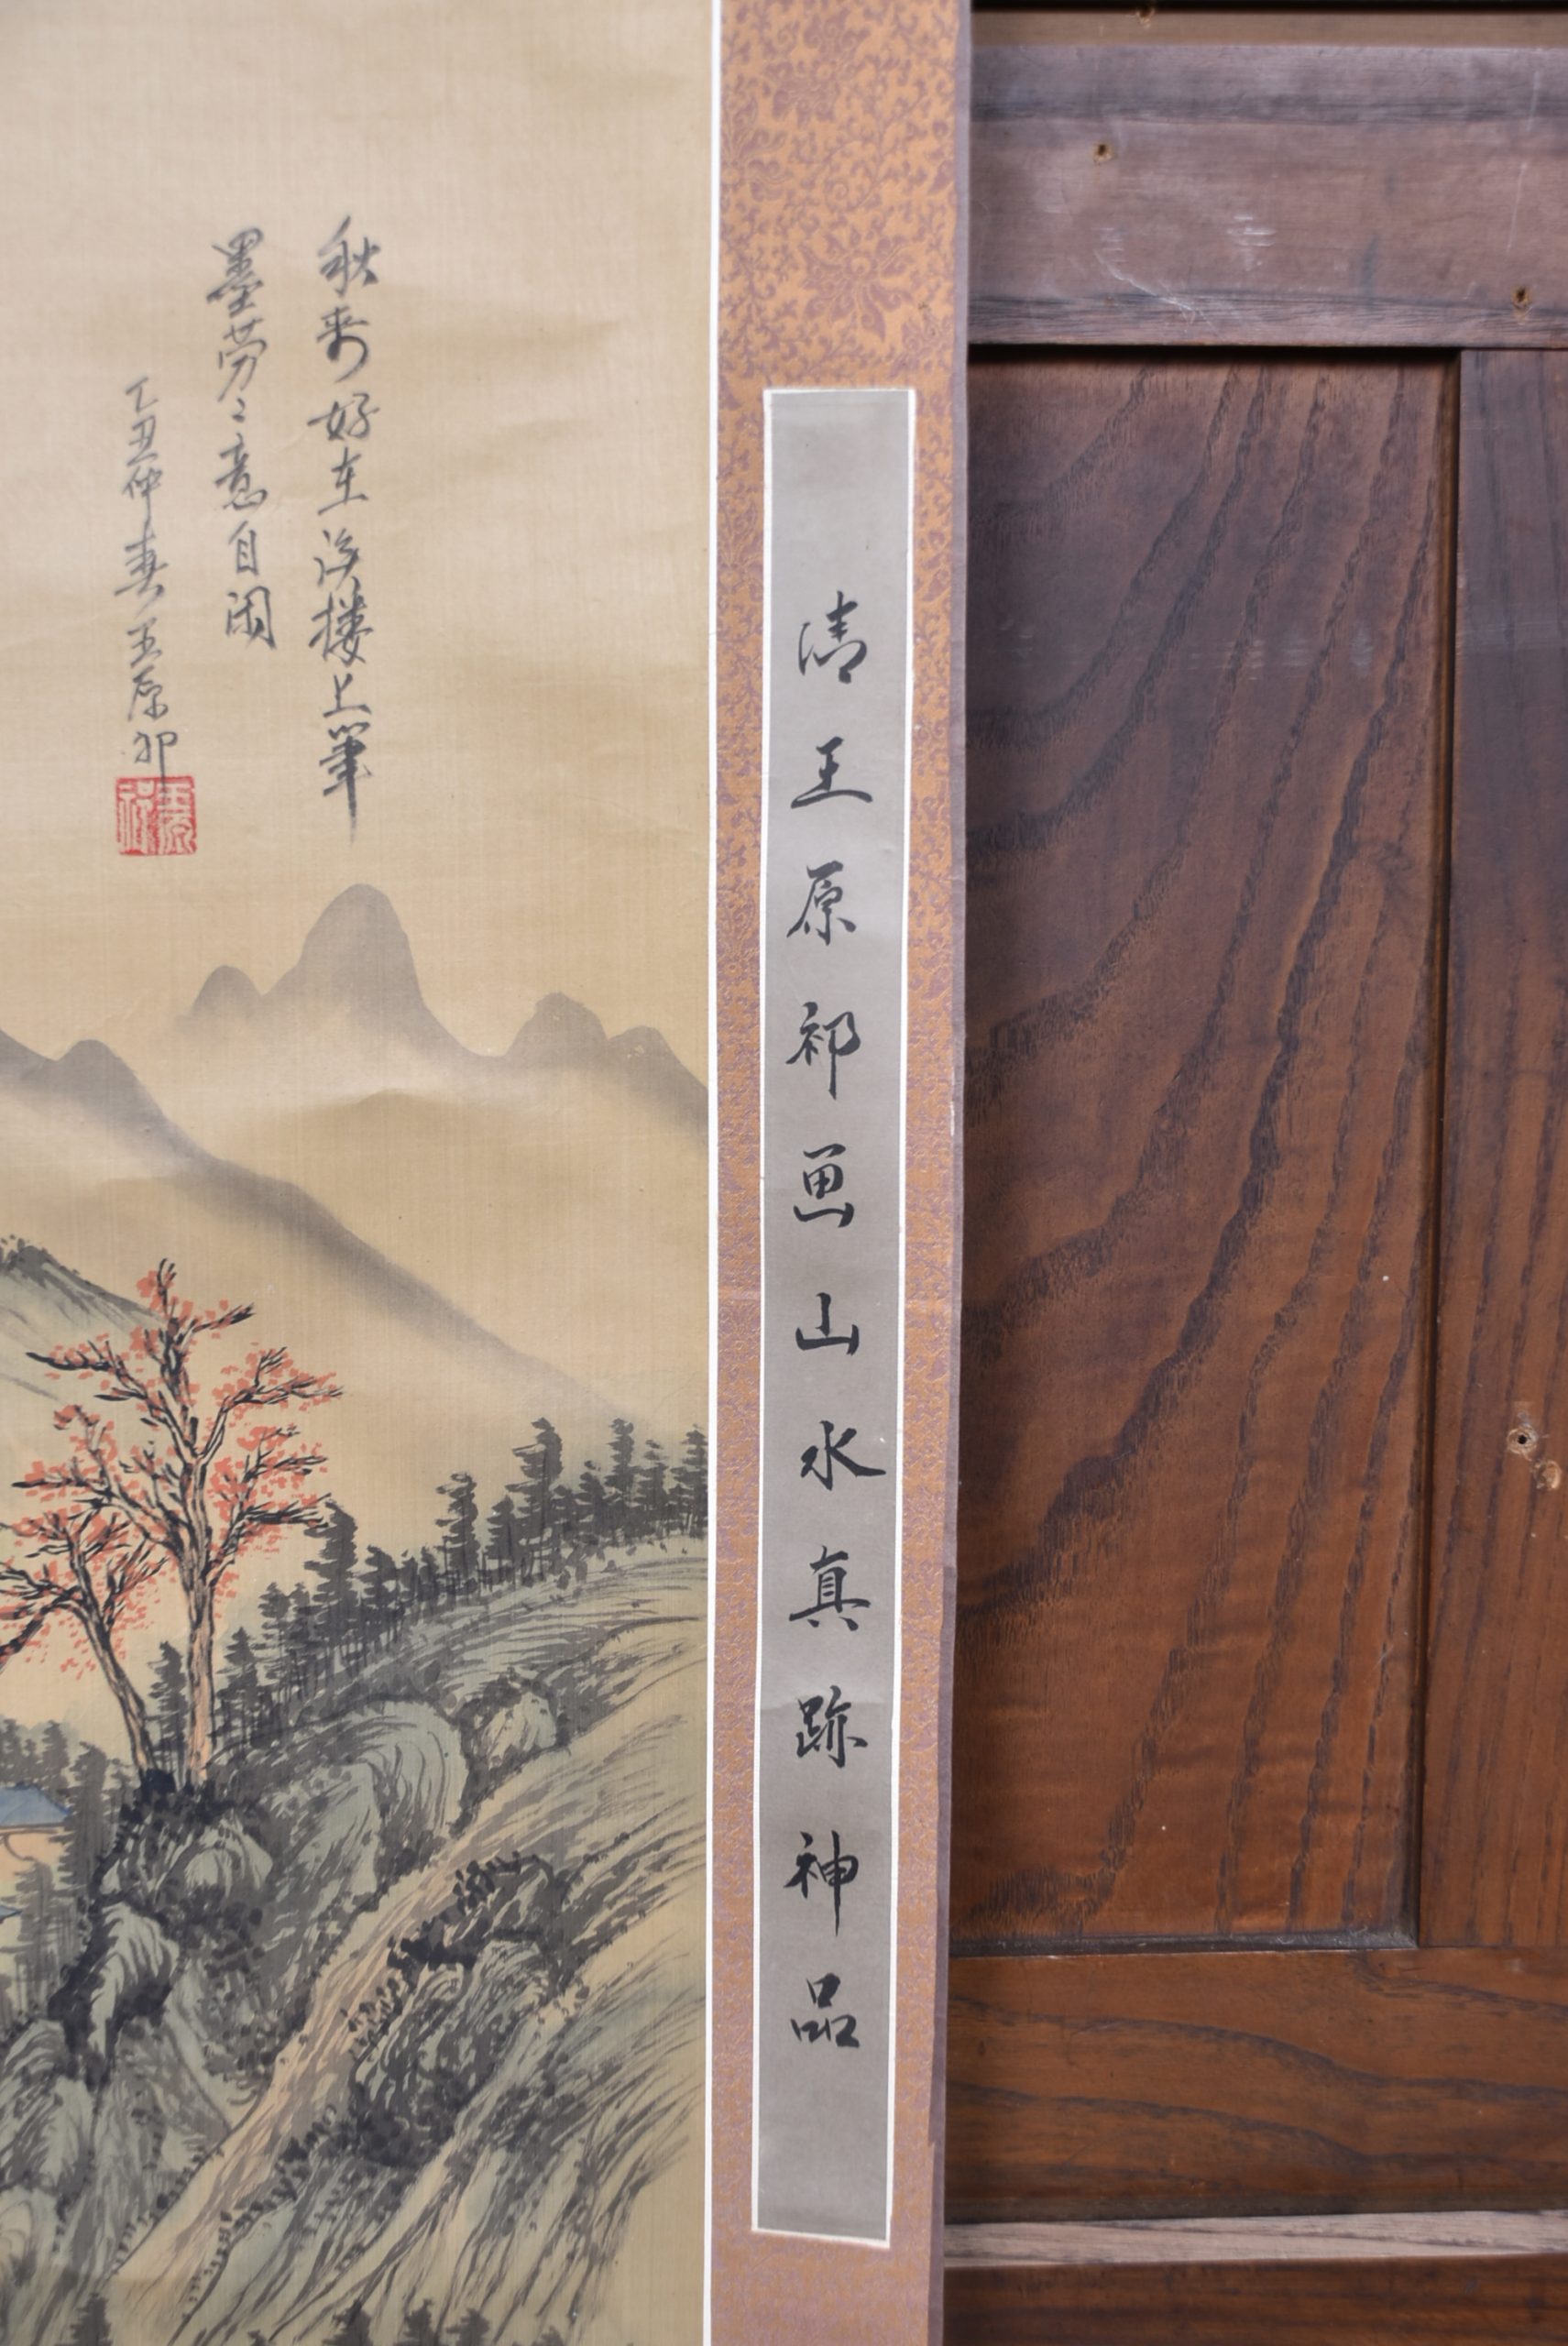 清王原祁画山水真跡神品
秋来好在溪楼上筆
墨勞々意自闲
丁丑仲春王原祁